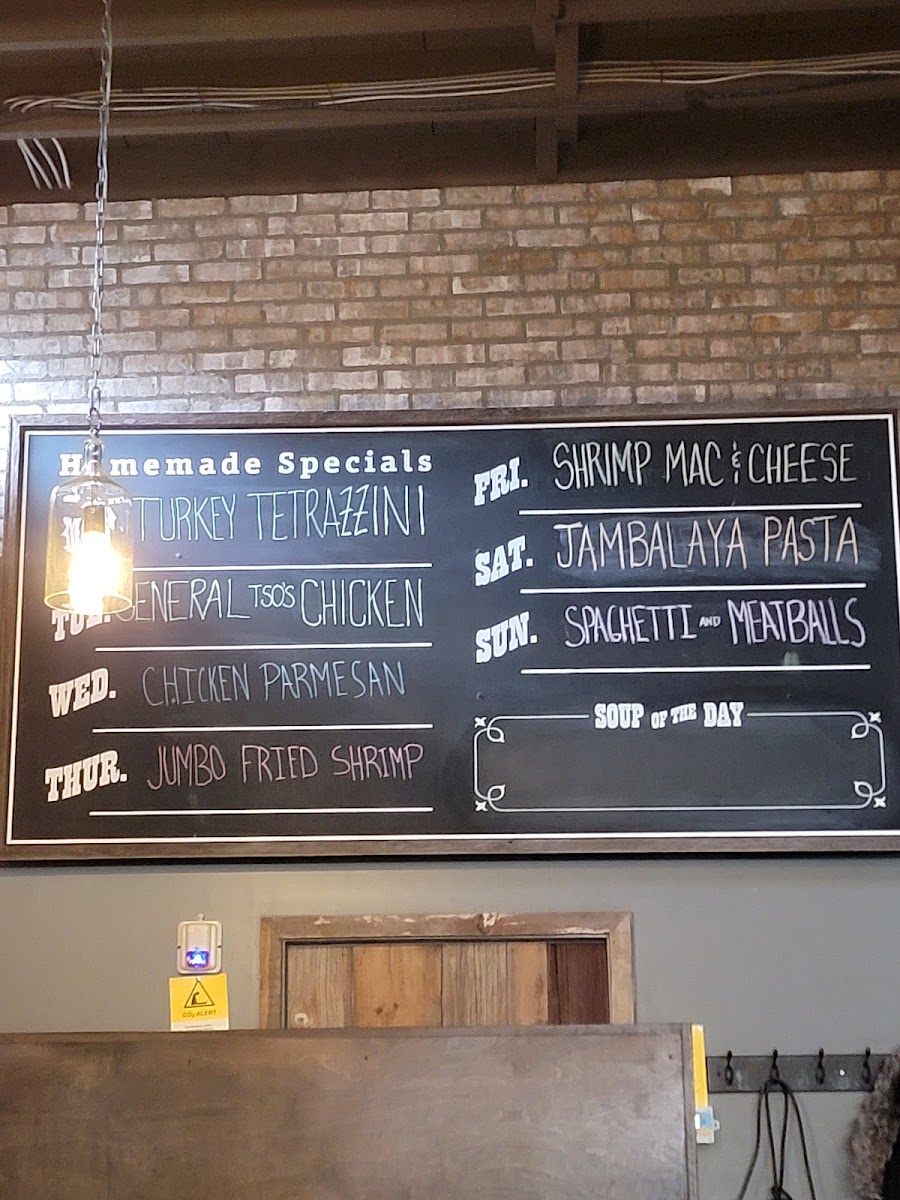 Homemade Specials
TURKEY TETRAZZINI
TUE. GENERAL TSO'S CHICKEN
WED. CHICKEN PARMESAN
THUR. JUMBO FRIED SHRIMP
FRI. SHRIMP MAC & CHEESE
SAT. JAMBALAYA PASTA
SUN. SPAGHETTI AND MEATBALLS
SOUP OF THE DAY
CO₂ ALERT